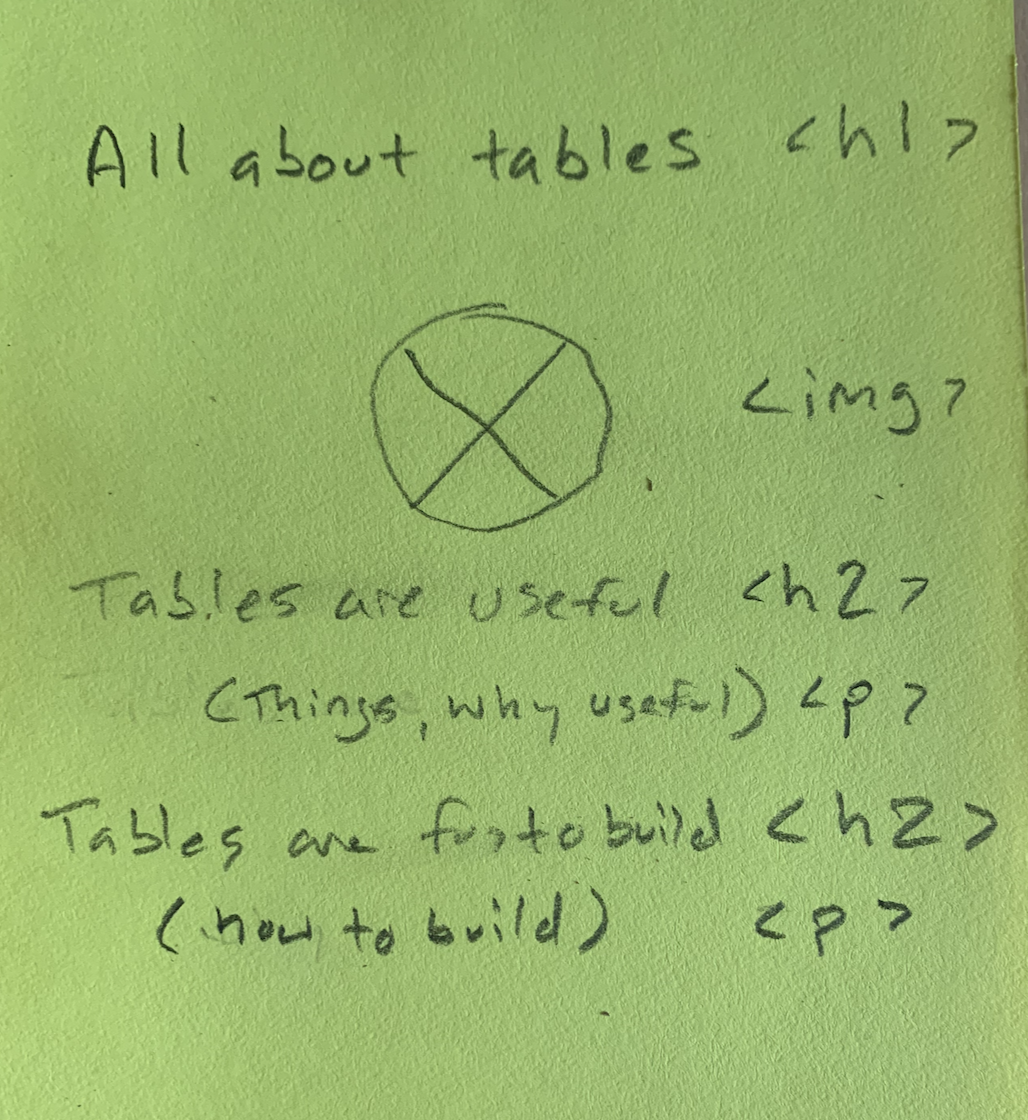 All about tables <h1>
<img>
Tables are useful <h2>
(Things, why useful) <p>
Tables are to build <h2>
(how to build) <p>